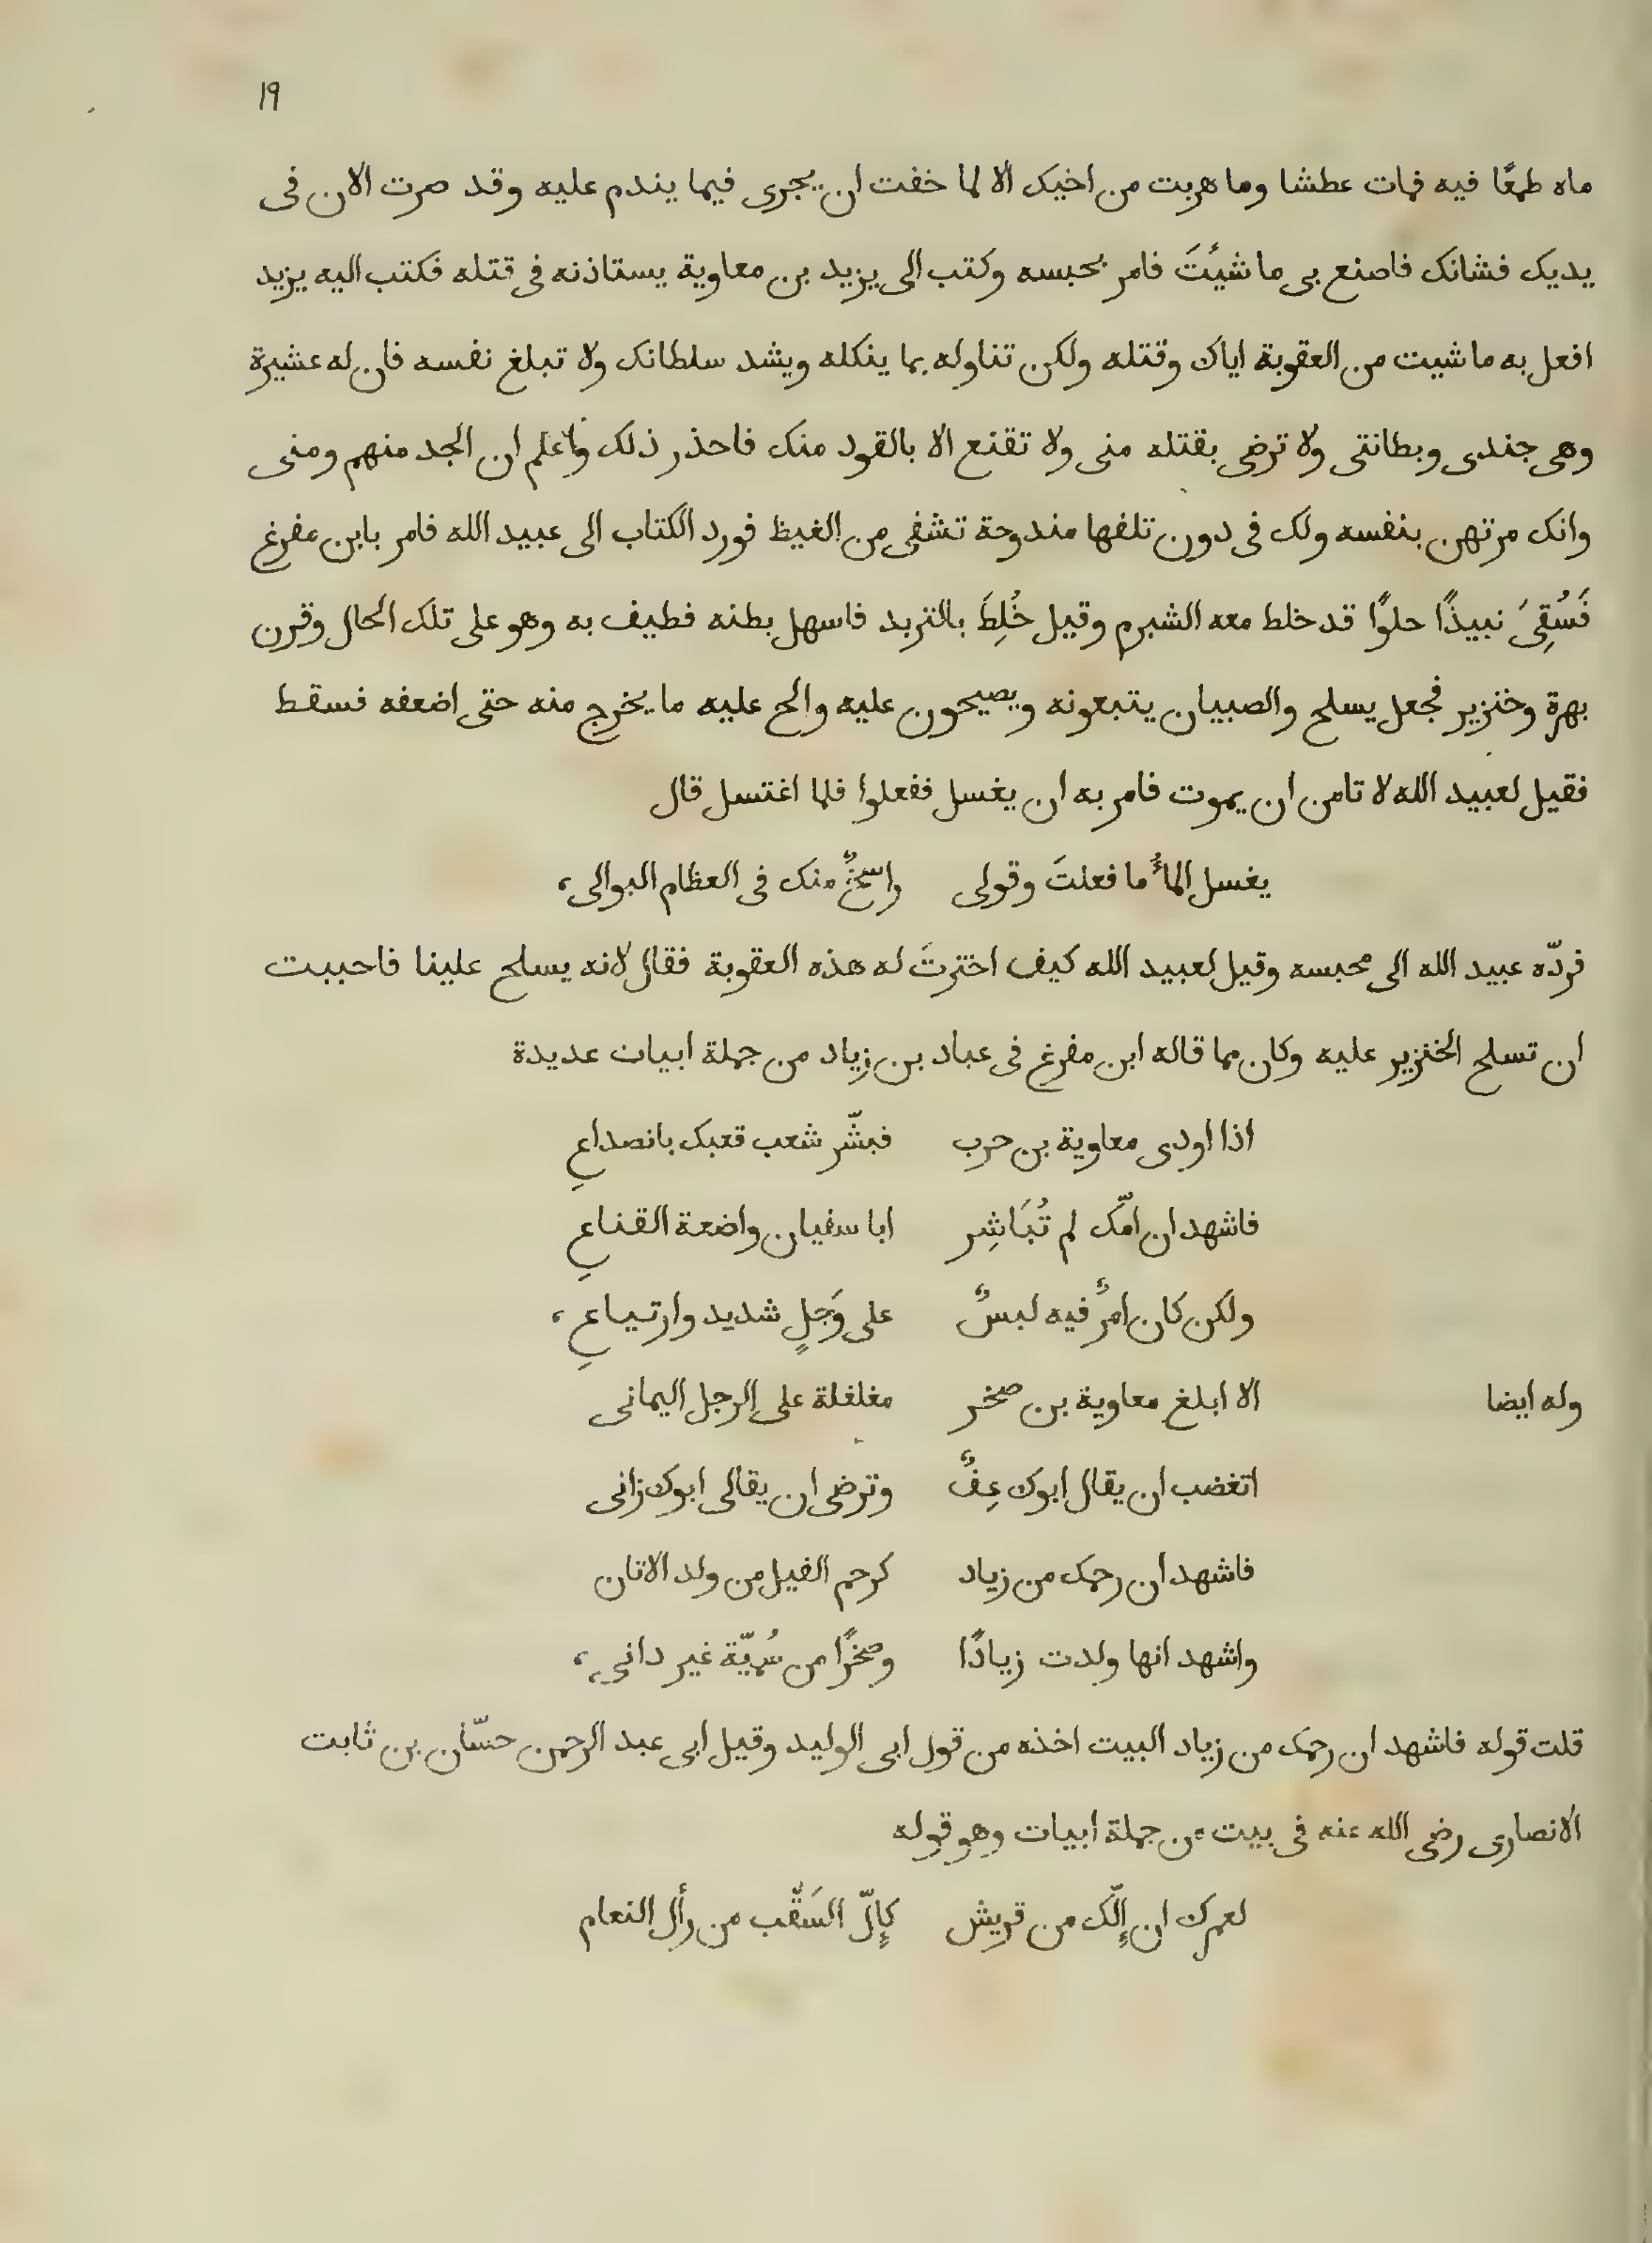 ١٩
ماه طمعًا فيه فمات عطشا وما هربت من اخيك الا لما خفت ان يجرى فيما يندم عليه وقد صرت الان فى
يديك فشانك فاصنع بى ما شيئتَ فامر بحبسه وكتب الى يزيد بن معاوية يستاذنه فى قتله فكتب اليه يزيد
افعل به ما شيت من العقوبة اياك وقتله ولكن تناوله بما ينكله ويشد سلطانك ولا تبلغ نفسه فان له عشيرة
وهى جندى وبطانتى ولا ترضى بقتله منى ولا تقنع الا بالقود منك فاحذر ذلك واعلم ان الجد منهم ومنى
وانك مرتهن بنفسه ولك فى دون تلفها مندوحة تشفى من الغيظ فورد الكتاب الى عبيد الله فامر بابن مفرغ
فَسُقِىَ نبيذًا حلوًا قد خلط معه الشبرم وقيل خُلِطَ بالتربد فاسهل بطنه فطيف به وهو على تلك الحال وقرن
بهرة وخنزير فجعل يسلح والصبيان يتبعونه ويصيحون عليه والح عليه ما يخرج منه حتى اضعفه فسقط
فقيل لعبيد الله لا تامن ان يموت فامر به ان يغسل ففعلوا فلما اغتسل قال
يغسل الماءُ ما فعلتَ وقولى راسخٌ منك فى العظام البوالى،
فردّه عبيد الله الى محبسه وقيل لعبيد الله كيف اخترتَ له هذه العقوبة فقال لانه يسلح علينا فاحببت
ان تسلح الخنزير عليه وكان مما قاله ابن مفرغ فى عباد بن زياد من جملة ابيات عديدة
اذا اودى معاوية بن حرب فبشّر شعب قعبك بانصداعِ
فاشهد ان امّك لم تُبَاشِر ابا سفيان واضعة القناعِ
ولكن كان امرٌ فيه لبسٌ على وَجَلٍ شديد وارتياعِ،
وله ايضا الا ابلغ معاوية بن صخر مغلغلة على الرجل اليمانى
اتغضب ان يقال ابوك عِفٌ وترضى ان يقالى ابوك زانى
فاشهد ان رحمك من زياد كرحم الفيل من ولد الاتان
واشهد انها ولدت زيادًا وصخرًا من سُميّة غير دانى،
قلت قوله فاشهد ان رحمك من زياد البيت اخذه من قول ابى الوليد وقيل ابى عبد الرحمن حسّان بن ثابت
الانصارى رضى الله عنه فى بيت من جملة ابيات وهو قوله
لعمرك ان إلّك من قريش كإلّ السَقْب من رأل النعام